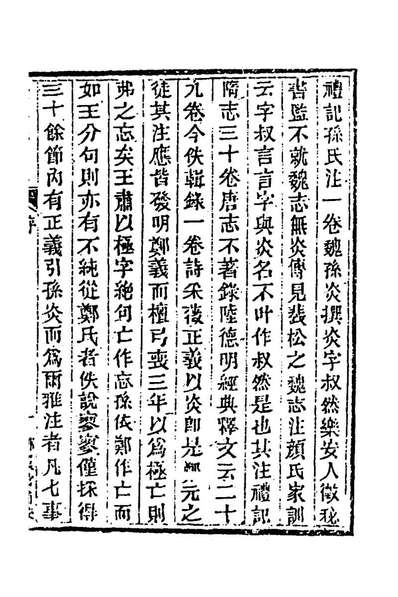 禮記孫氏注一卷魏孫炎撰炎字叔然樂安人徵祕
書監不就魏志無炎傳見裴松之魏志注顏氏家訓
云字叔言言字與炎名不叶作叔然是也其注禮記
隋志三十卷唐志不著錄陸德明經典釋文云二十
九卷今佚輯錄一卷詩采薇正義以炎即是鄭元之
徒其注應皆發明鄭義而檀弓喪三年以爲極亡則
弗之忘矣王肅以極字絶句亡作忘孫依鄭作亡而
如王分句則亦有不純從鄭氏者佚說寥寥僅採得
三十餘節內有正義引孫炎而爲爾雅注者凡七事
序